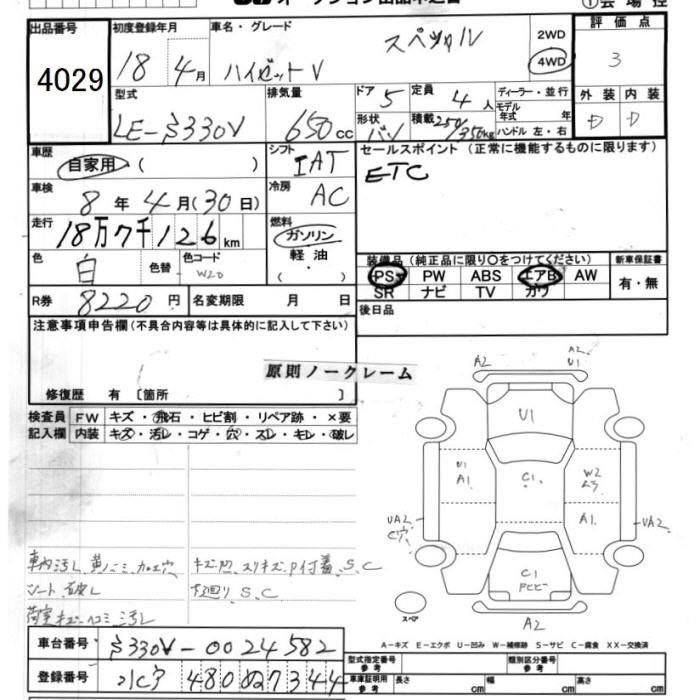 出品番号 初度登録年月 車名・グレード スペシャル 2WD 評価点
4029 18年 4月 ハイゼットV 4WD 3
型式 排気量 ドア 5 定員 4人 ディーラー・並行 外装 内装
LE-S330V 650cc 形状 バン 積載 250/350kg モデル年式 年 D D
ハンドル 左・右
車歴 自家用 ( ) シフト IAT セールスポイント (正常に機能するものに限ります)
車検 8年4月(30日) 冷房 AC ETC
走行 18万7千126km 燃料 ガソリン
軽油
色 白 色替 色コード W20 装備品 (純正品に限り○をつけてください) 新車保証書
PS PW ABS エアB AW 有・無
SR ナビ TV カワ
R券 8220円 名変期限 月 日 後日品
注意事項申告欄(不具合内容等は具体的に記入して下さい)
原則ノークレーム
修復歴 有 〔箇所 〕
検査員 FW キズ・飛石・ヒビ割・リペア跡・×要
記入欄 内装 キズ・汚レ・コゲ・穴・スレ・キレ・破レ
A2 A2 U1
U1
U1 A1 C1 W2
UA2 C穴 A1 UA2
C1
スペア A2
車内汚し
シート破レ
キズ凹、スリキズ、P付着、S、C
下廻り S、C
A−キズ E−エクボ U−凹み W−補修跡 S−サビ C−腐食 XX−交換済
車台番号 S330V-0024582
型式指定番号 参考 類別区分番号 参考
登録番号 480 7344
車庫証明用 参考 長さ cm 幅 cm 高さ cm